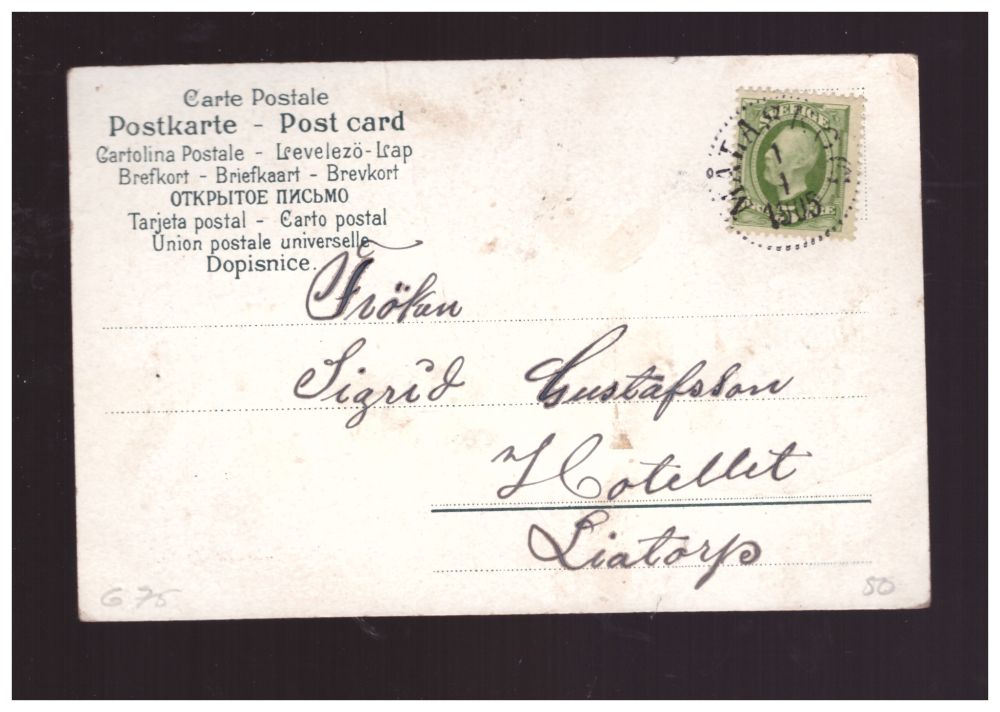 Carte Postale
Postkarte - Post card
Cartolina Postale - Levelezö-Lap
Brefkort - Briefkaart - Brevkort
ОТКРЫТОЕ ПИСЬМО
Tarjeta postal - Carto postal
Union postale universelle
Dopisnice.
SVERIGE
1
1
1905
Frökan
Sigrid Gustafsson
Hotellet
Liatorp
G 75
50